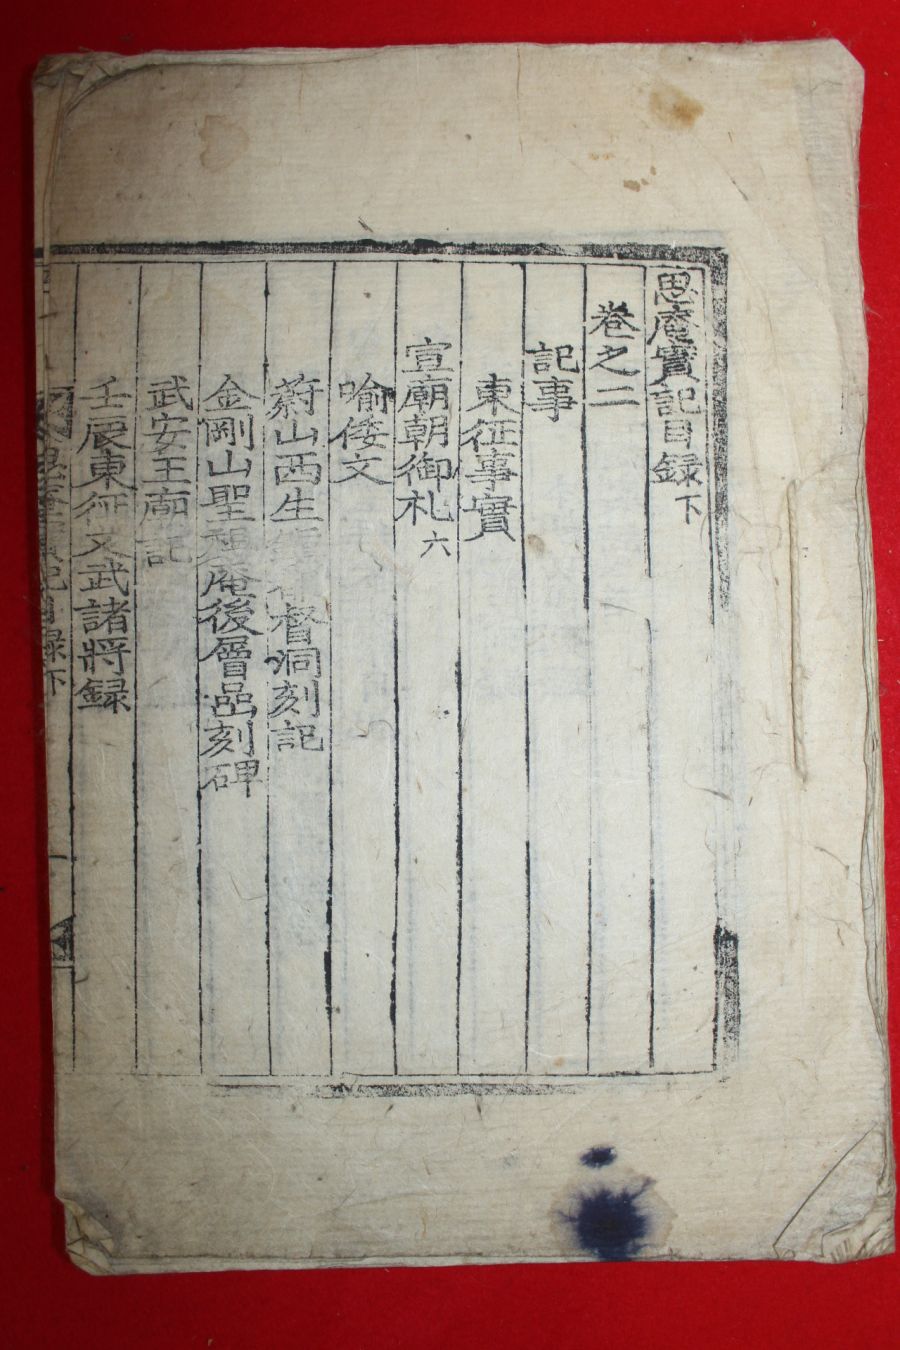 思庵實記目録下
卷之二
記事
東征事實
宣廟朝御札六
喻倭文
蔚山西生 都督洞刻記
金剛山聖 庵後層嵒刻碑
武安王廟記
壬辰東征文武諸將録
思庵實記目録下